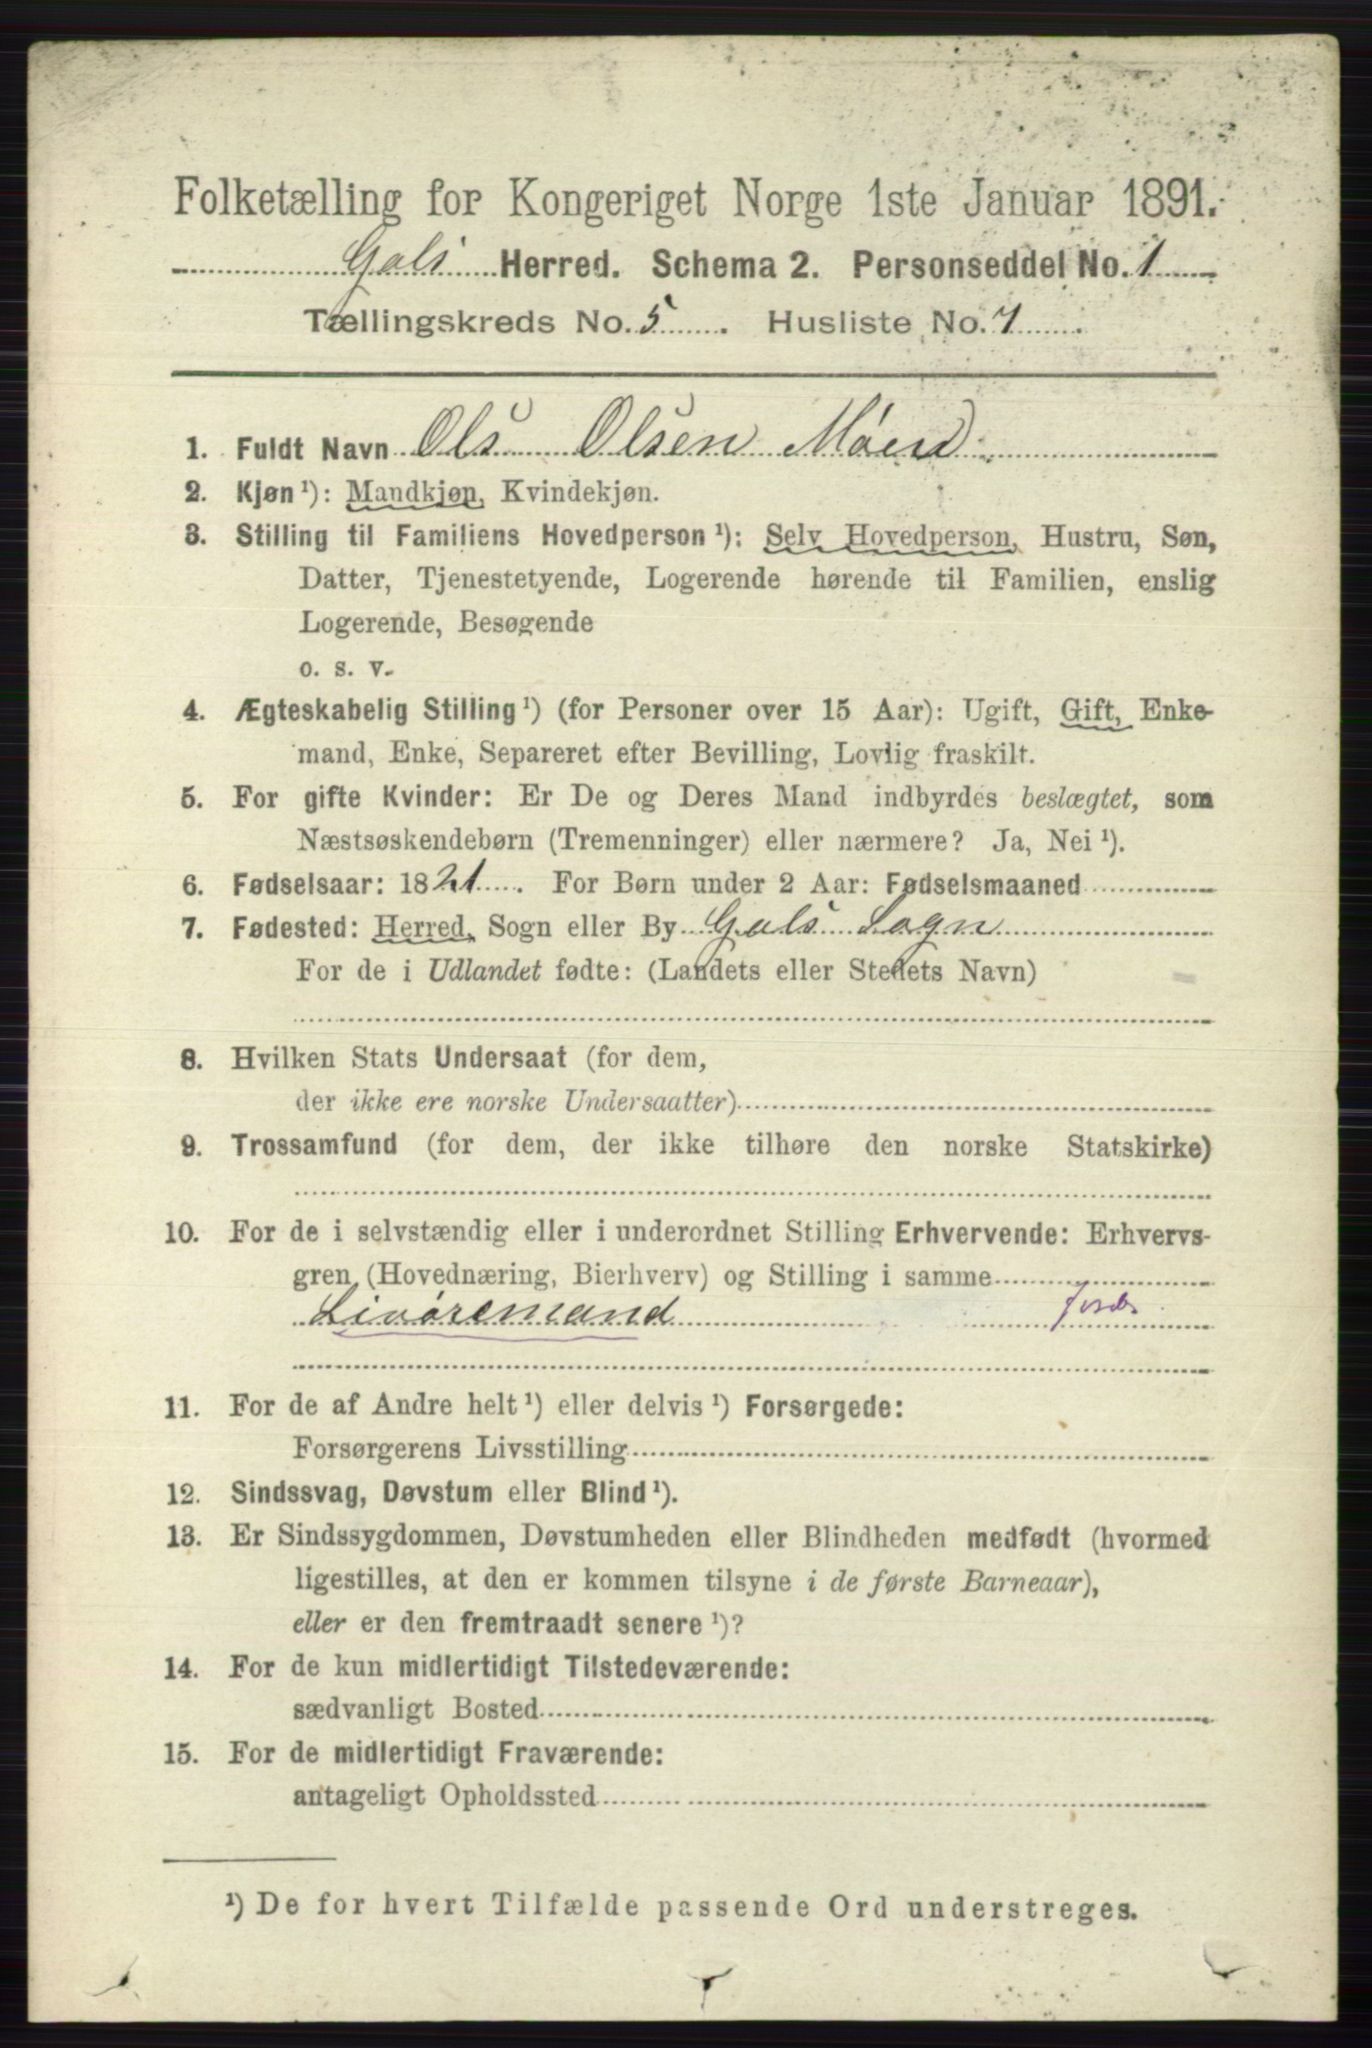 Folketælling for Kongeriget Norge 1ste Januar 1891.
Gols Herred. Schema 2. Personseddel No. 1
Tællingskreds No. 5. Husliste No. 7.
1. Fuldt Navn Ols Olsen Møen
2. Kjøn ¹): Mandkjøn, Kvindekjøn.
3. Stilling til Familiens Hovedperson ¹): Selv Hovedperson, Hustru, Søn,
Datter, Tjenestetyende, Logerende hørende til Familien, enslig
Logerende, Besøgende
o. s. v.
4. Ægteskabelig Stilling ¹) (for Personer over 15 Aar): Ugift, Gift, Enke-
mand, Enke, Separeret efter Bevilling, Lovlig fraskilt.
5. For gifte Kvinder: Er De og Deres Mand indbyrdes beslægtet, som
Næstsøskendebørn (Tremenninger) eller nærmere? Ja, Nei ¹).
6. Fødselsaar: 1821. For Børn under 2 Aar: Fødselsmaaned
7. Fødested: Herred, Sogn eller By Gols Sogn
For de i Udlandet fødte: (Landets eller Stedets Navn)
8. Hvilken Stats Undersaat (for dem,
der ikke ere norske Undersaatter)
9. Trossamfund (for dem, der ikke tilhøre den norske Statskirke)
10. For de i selvstændig eller i underordnet Stilling Erhvervende: Erhvervs-
gren (Hovednæring, Bierhverv) og Stilling i samme
Livøremand
11. For de af Andre helt ¹) eller delvis ¹) Forsørgede:
Forsørgerens Livsstilling
12. Sindssvag, Døvstum eller Blind ¹).
13. Er Sindssygdommen, Døvstumheden eller Blindheden medfødt (hvormed
ligestilles, at den er kommen tilsyne i de første Barneaar),
eller er den fremtraadt senere ¹)?
14. For de kun midlertidigt Tilstedeværende:
sædvanligt Bosted
15. For de midlertidigt Fraværende:
antageligt Opholdssted
¹) De for hvert Tilfælde passende Ord understreges.